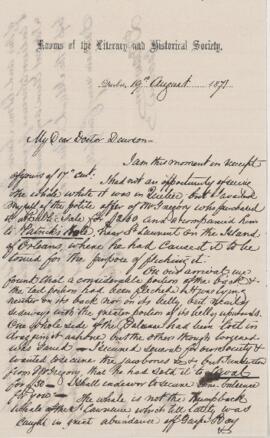 Rooms of the Literary and Historical Society,
Quebec, 19th August 1871
My Dear Doctor Dawson
I am this moment in receipt
of yours of 17th cut. I had not an opportunity of seeing
the whale while it was in Quebec, but I availed
myself of the polite offer of Mr Gregory who purchased
it at the Sale for $240, and accompanied him
to Patrick's Hole, near St Laurent on the Island
of Orleans, where he had caused it to be
towed for the purpose of flecking it.
On our arrival we
found that a considerable portion of the back &
the tail portion had been flecked. It was lying
neither on its back nor on its belly, but
sideways with the greater portion of its belly upwards.
One whole side of the Baleen had been lost in
dragging it ashore but the other though
was there. I secured
wanted to secure the jaw bones &c but
from Mr Gregory, that he had sold it to
for $50 — I shall endeavor to secure some baleen
for you — The whale is not the Humpback
whale of the St Lawrence which till lately was
caught in great abundance off Gaspé Bay